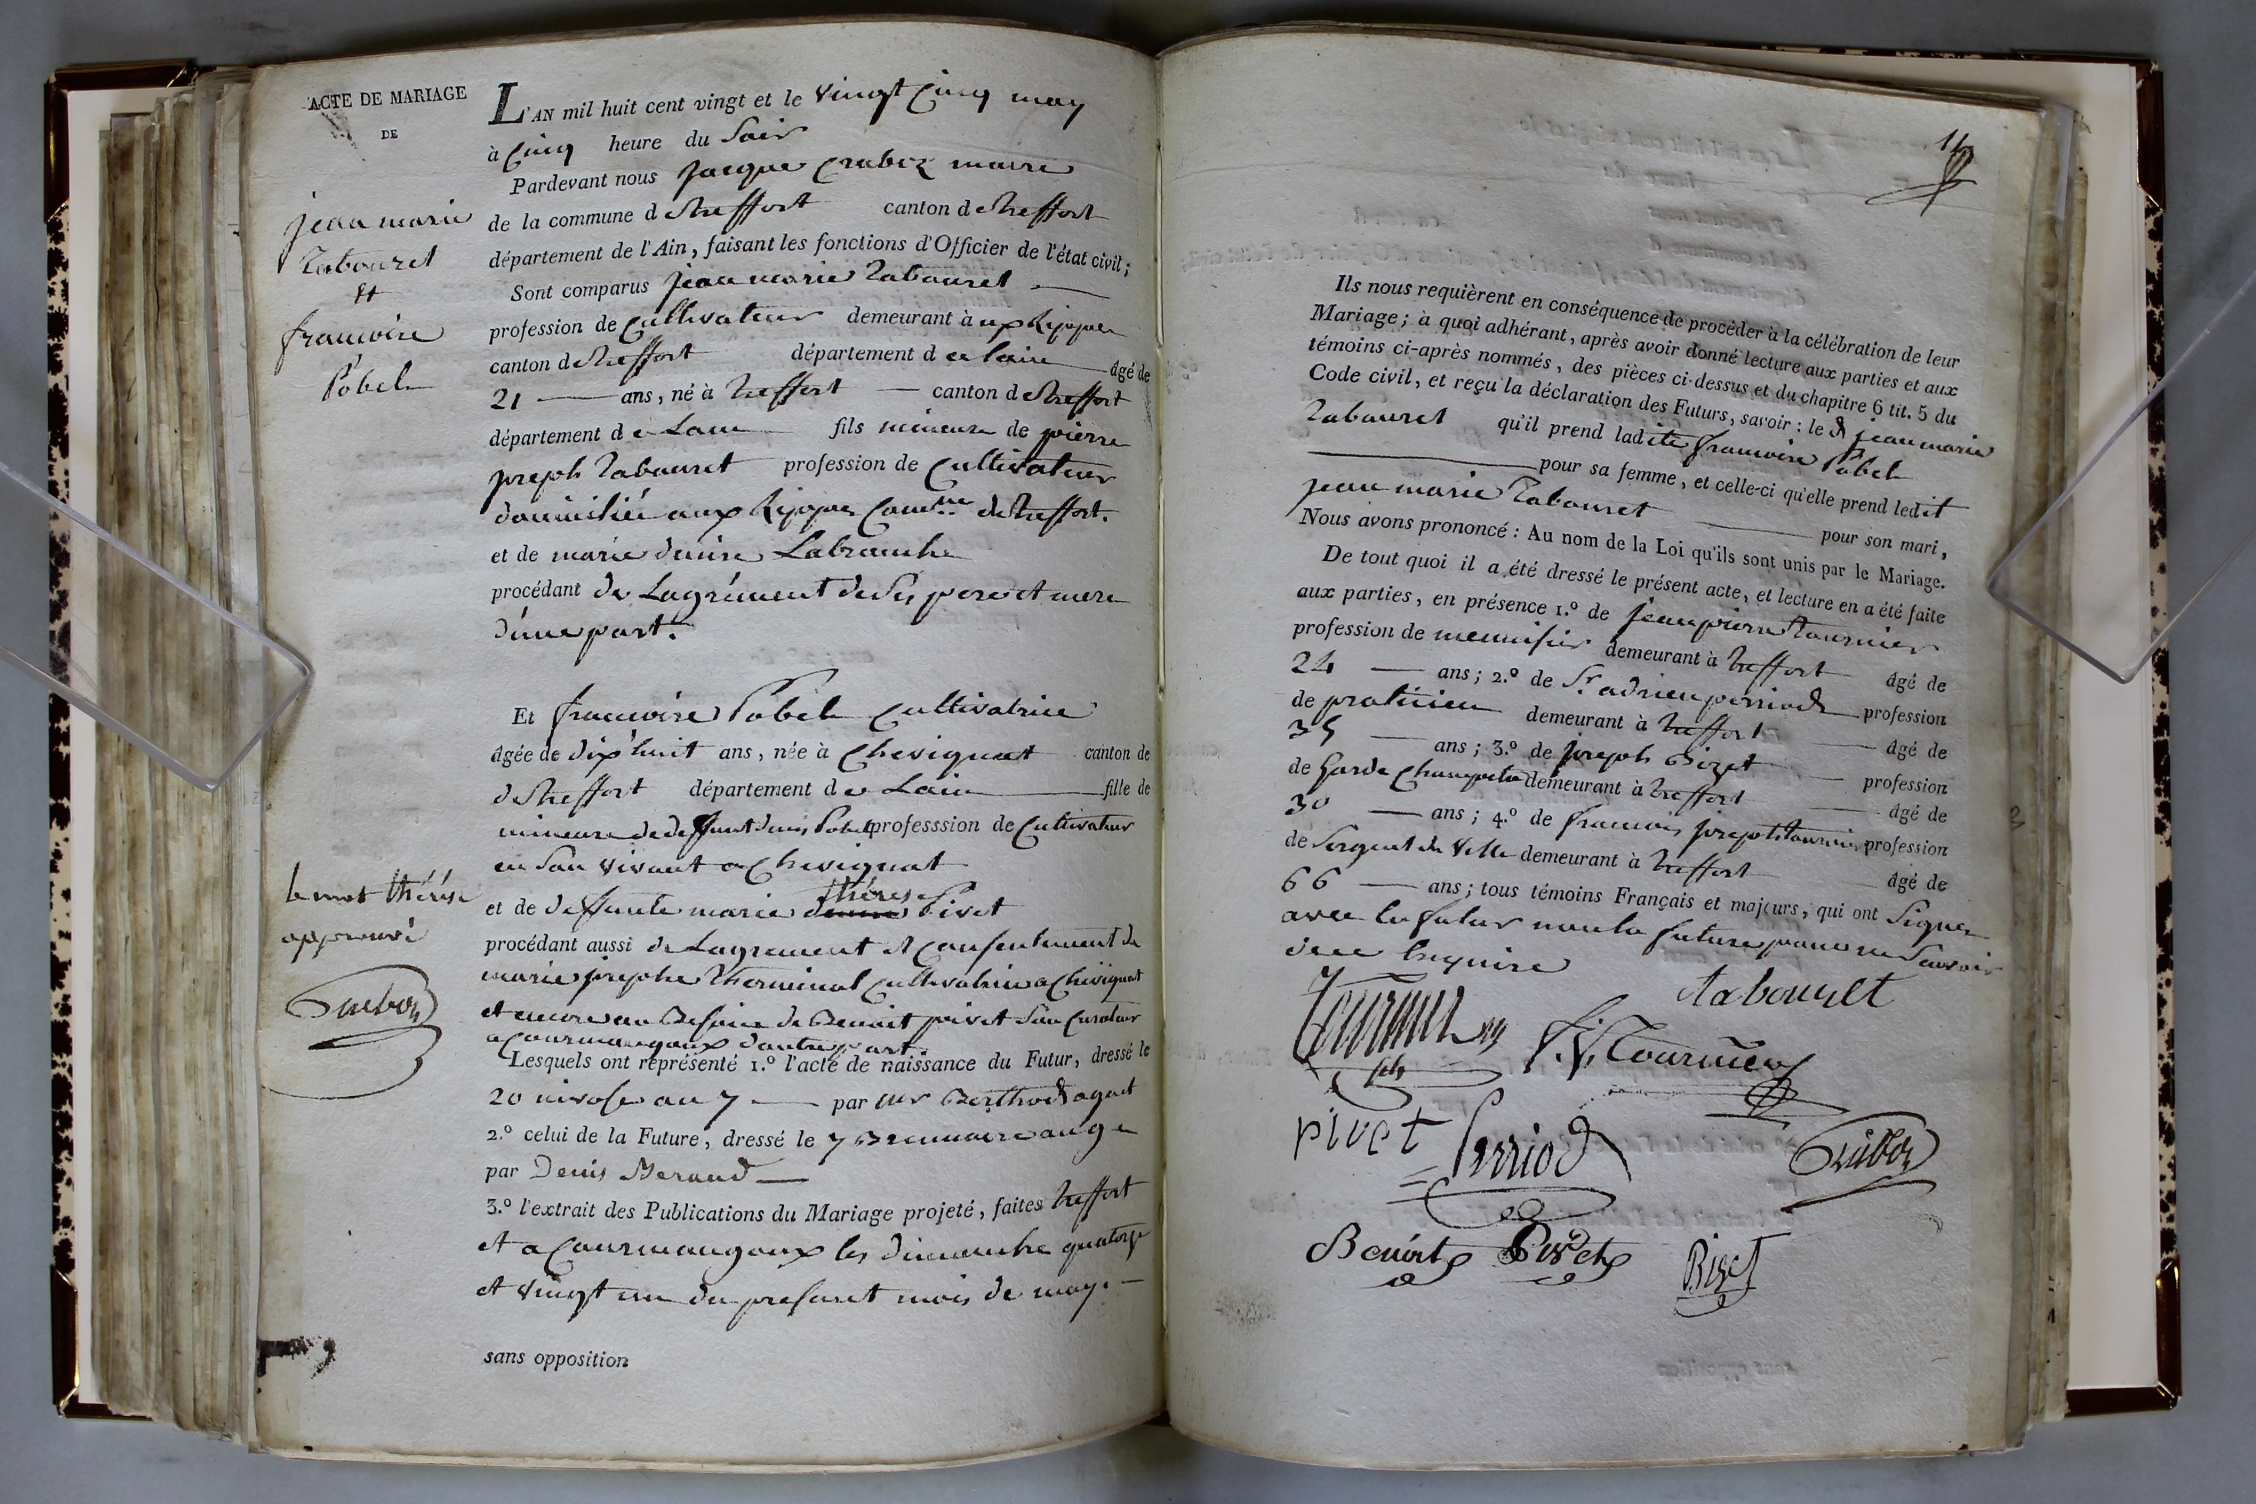 ACTE DE MARIAGE
DE
jean marie
Tabouret
et
francoise
Pobel
L'AN mil huit cent vingt et le vingt cinq may
à cinq heure du Soir
Pardevant nous Jacque maire
de la commune de treffort canton de treffort
département de l'Ain, faisant les fonctions d'Officier de l'état civil;
Sont comparus jean marie Tabouret
profession de Cultivateur demeurant à
canton de treffort département de lain âgé de
21 ans, né à treffort canton de treffort
département de Lain fils mineure de pierre
joseph Tabouret profession de Cultivateur
domisilié aux de treffort.
et de marie denise Labranche
procédant de Lagrément de Ses pere et mere
d'une part.
Et francoise Pobel Cultivatrice
âgée de dix huit ans, née à Chevignat canton de
de treffort département de Lain fille de
mineure de deffunt denis Pobel professsion de Cultivateur
en Son vivant a Chevignat
thérese
et de deffunte marie Pivet
le mot thérése
approuvé
procédant aussi de Lagrement et Consentement de
marie josephe Cultivatrice a Chevignat
et encore au de Benoit pivet Son Curateur
a Courmangoux dautre part.
Lesquels ont représenté 1.º l'acte de naissance du Futur, dressé le
20 nivose an 7 par mr Berthod agent
2.º celui de la Future, dressé le 7 Brumaire an 9
par Denis Beraud
3.º l'extrait des Publications du Mariage projeté, faites treffort
et a Courmangoux les dimanche quatorze
et vingt un du present mois de may.
sans opposition
Ils nous requièrent en conséquence de procéder à la célébration de leur
Mariage; à quoi adhérant, après avoir donné lecture aux parties et aux
témoins ci-après nommés, des pièces ci-dessus et du chapitre 6 tit. 5 du
Code civil, et reçu la déclaration des Futurs, savoir: le d jean marie
Tabouret qu'il prend ladite francoise Pobel
pour sa femme, et celle-ci qu'elle prend ledit
jean marie Tabouret pour son mari,
Nous avons prononcé: Au nom de la Loi qu'ils sont unis par le Mariage.
De tout quoi il a été dressé le présent acte, et lecture en a été faite
aux parties, en présence 1.º de jean pierre Tournier
profession de menuisier demeurant à treffort âgé de
24 ans; 2.º de Sr. adrien perriod profession
de praticien demeurant à treffort âgé de
35 ans; 3.º de joseph Bizet profession
de Garde Champetre demeurant à treffort âgé de
30 ans; 4.º de francois joseph Tournier profession
de Sergent de Ville demeurant à treffort âgé de
66 ans; tous témoins Français et majeurs, qui ont Signer
avec le futur non la future pour ne Savoir
de ce
tabouret
Tournier
Tournier
pivet Perriod
Benoit Pivet Bizet